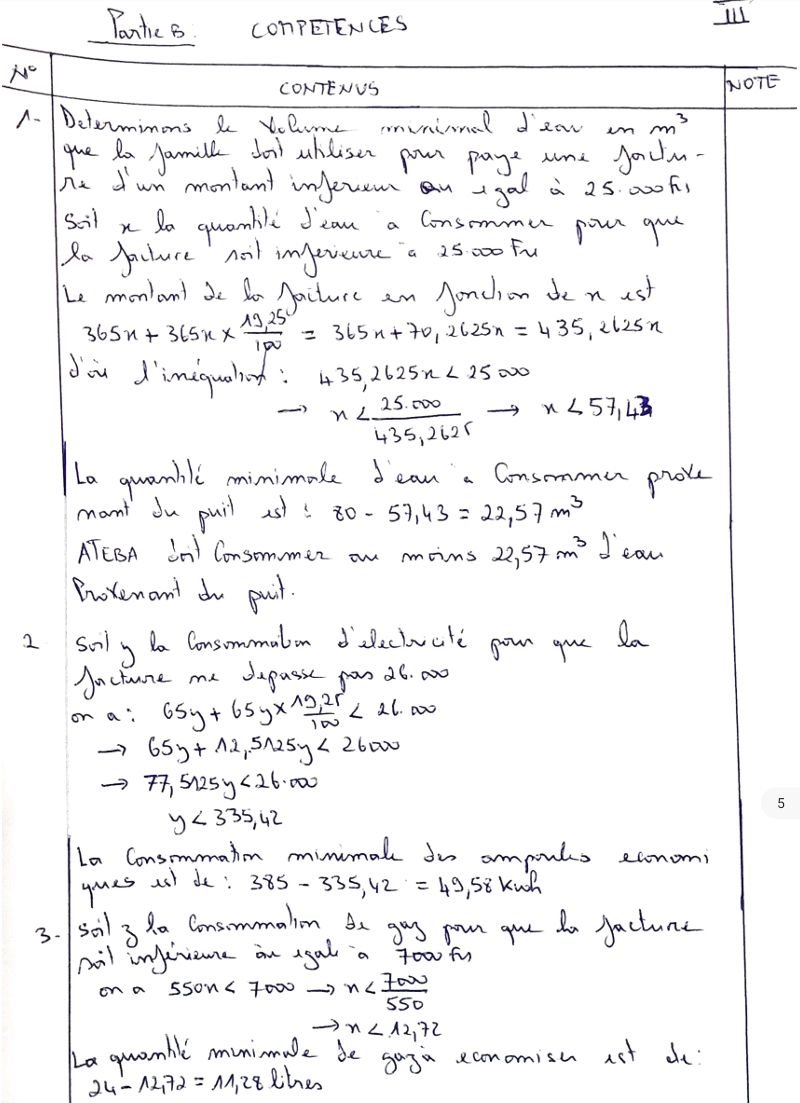 Partie B : COMPETENCES III
N° CONTENUS NOTE
1- Determinons le volume minimal d'eau en m³
que la famille doit utiliser pour paye une factu-
re d'un montant inferieur ou egal à 25.000 Frs
Soit x la quantité d'eau a Consommer pour que
la facture soit inferieure a 25.000 Frs
Le montant de la facture en fonction de x est
365x + 365x × 19,25/100 = 365x + 70,2625x = 435,2625x
d'où l'inéquation : 435,2625x < 25 000
→ x < 25.000/435,2625 → x < 57,43
La quantité minimale d'eau a Consommer prove
nant du puit est : 80 - 57,43 = 22,57 m³
ATEBA doit Consommer au moins 22,57 m³ d'eau
Provenant du puit.
2 Soit y la Consommation d'electricité pour que la
facture ne depasse pas 26.000
on a : 65y + 65y × 19,25/100 < 26.000
→ 65y + 12,5125y < 26000
→ 77,5125y < 26.000
y < 335,42
La Consommation minimale des ampoules economi
ques est de : 385 - 335,42 = 49,58 Kwh
3- Soit z la Consommation de gaz pour que la facture
soit inférieure ou egale à 7000 Frs
on a 550x < 7000 → x < 7000/550
→ x < 12,72
La quantité minimale de gaz à economiser est de :
24 - 12,72 = 11,28 litres
5